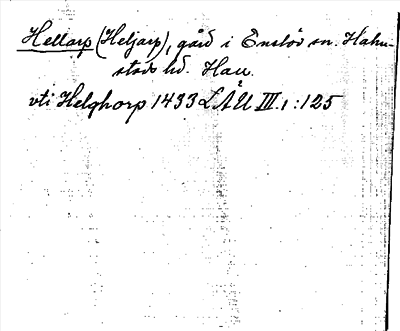 Hellarp (Heljarp), gård i Enslöv sn. Halm-
stads hd. Hall.
vti Helghorp 1433 LÅU III.1:125